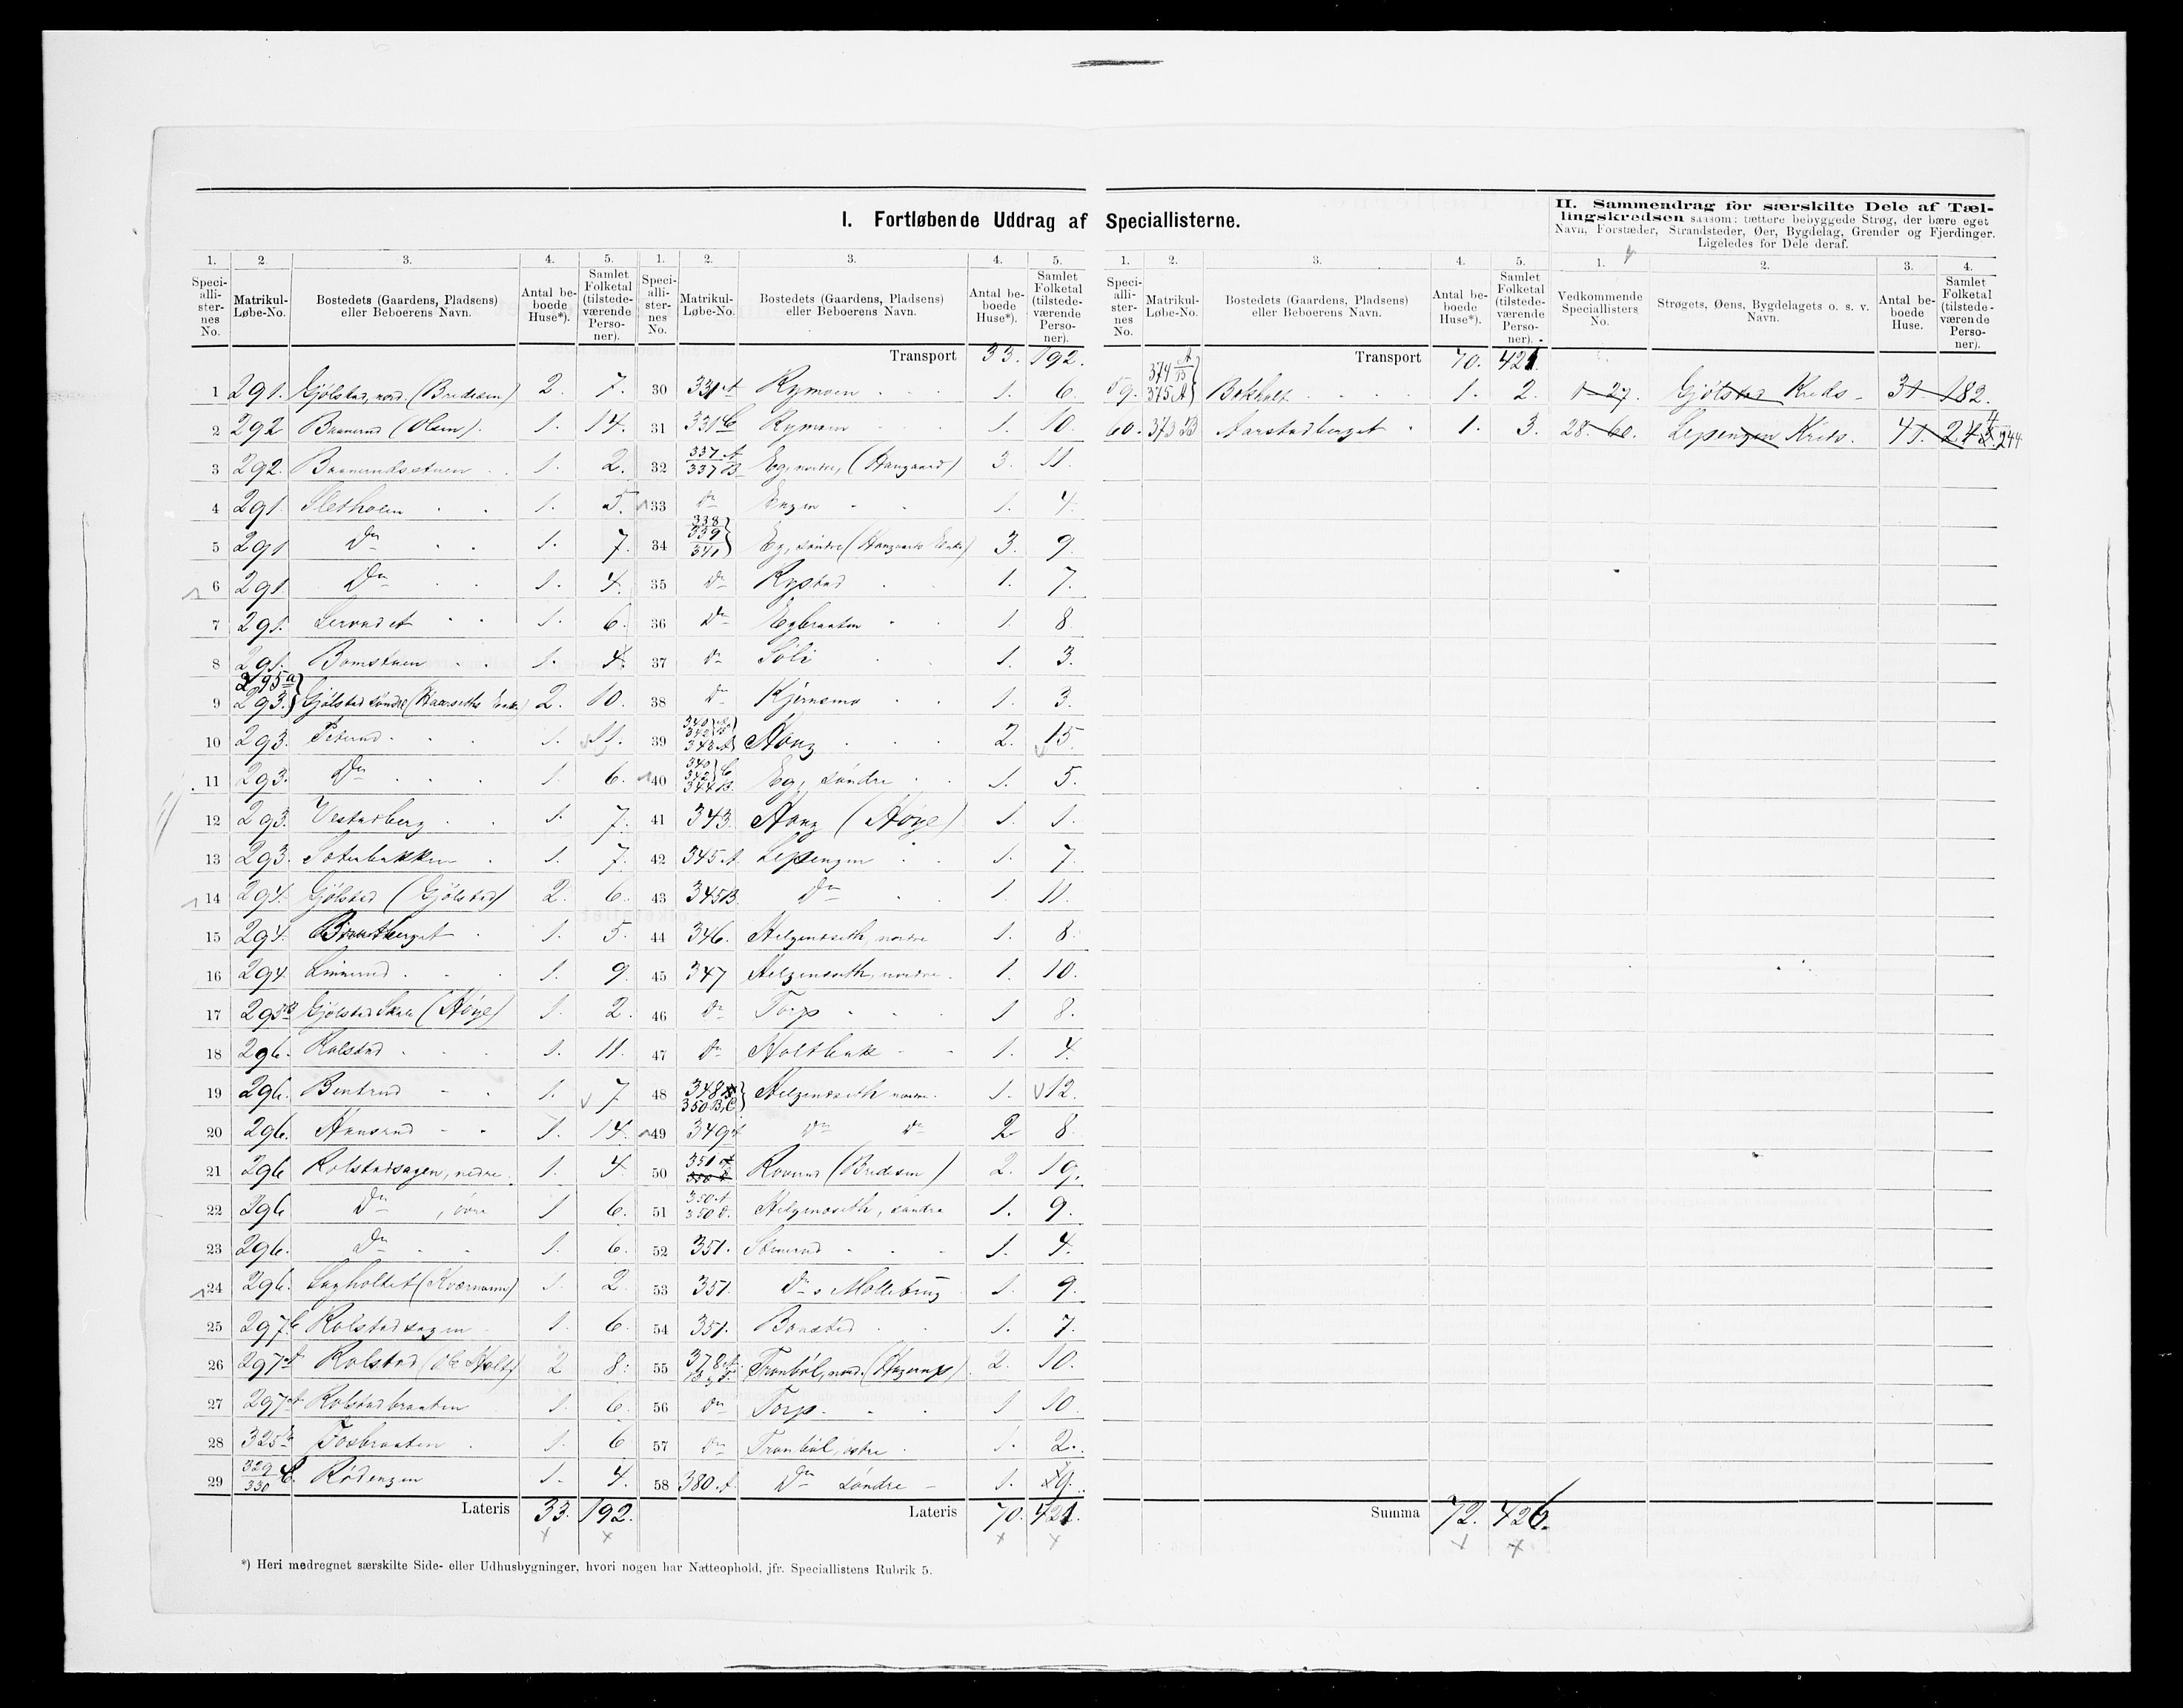 I. Fortløbende Uddrag af Speciallisterne.
II. Sammendrag for særskilte Dele af Tæl-
lingskredsen saasom: tættere bebyggede Strøg, der bære eget
Navn, Forstæder, Strandsteder, Øer, Bygdelag, Grender og Fjerdinger.
Ligeledes for Dele deraf.
1. 2. 3. 4. 5.
Speciallisternes No. Matrikul-Løbe-No. Bostedets (Gaardens, Pladsens) eller Beboerens Navn. Antal beboede Huse*). Samlet Folketal (tilstedeværende Personer).
1 291. Gjølstad, nord. (Bredesen) 2. 7.
2 292 Baanerud (Olsen). 1. 14.
3 292. Baanerudsstuen 1. 2.
4 291. Sletholen 1. 5.
5 291 Do 1. 7.
6 291. Do 1. 4.
7 291. Lerondet 1. 6.
8 291. Bomstuen 1. 4.
9 295a 293. Gjølstad søndre (Kaarseths Enke) 2. 10.
10 293. Peterud 1. 11.
11 293. Do 1. 6.
12 293. Vestadberg 1. 7.
13 293. Soterbakken 1. 7.
14 294. Gjølstad (Gjølstad) 2. 6.
15 294. Brautberget 1. 5.
16 294. Linnerud 1. 9.
17 295B Gjølstad Skole (Høye) 1. 2.
18 296. Rolstad 1. 11.
19 296. Bentrud 1. 7.
20 296. Hansrud 1. 14.
21 296 Rolstadsagen, nedre. 1. 4
22 296 Do, øvre 1 6.
23 296. Do 1. 6.
24 296. Lagholtet (Kværnmo) 1. 2.
25 297b Rolstadsagen 1. 6.
26 297A Rolstad (Ole Holt) 2 8.
27 297A Rolstadbraaten 1. 6.
28 325b Fosbraaten 1. 6
29 329 330 C. Rødengen 1. 4.
Lateris 33. 192.
1. 2. 3. 4. 5.
Speciallisternes No. Matrikul-Løbe-No. Bostedets (Gaardens, Pladsens) eller Beboerens Navn. Antal beboede Huse*). Samlet Folketal (tilstedeværende Personer).
Transport 33. 192.
30 331A Rymoen 1. 6.
31 331C Rymoen 1. 10.
32 337A 337B Eg, nordre, (Haugaard) 3. 11.
33 do Engen 1. 4.
34 338 339 341 Eg, søndre (Haugaards Enke) 3. 9.
35 Do Rystad 1. 7.
36 Do Egbraaten 1. 8.
37 do Soli 1. 3.
38 Do Kjernsmo 1. 3.
39 340 342 343A Haug 2. 15.
40 340 342 C 344B. Eg, søndre 1. 5.
41 343. Haug (Høye) 1. 1.
42 345A. Lepengen 1. 7.
43 345B. Do 1. 11.
44 346. Helgenseth, nordre 1. 8.
45 347 Helgenseth, nordre. 1. 10.
46 do Torp 1 8.
47 do Holtbak 1. 4.
48 348 350B,C Helgenseth nordre. 1. 12.
49 349 Do Do 2 8.
50 351A Roverud (Bredesen) 2. 19.
51 350A 350D. Helgenseth, søndre 1. 9.
52 351. Sønnerud 1. 4.
53 351. Do s Møllebrug 1. 9.
54 351. Bonsted 1. 7.
55 378A. Trønbøl, nord. (Hagerup) 2. 10.
56 do Torp. 1 10.
57 do Trønbøl, østre 1. 2.
58 380A. Do søndre 1. 9.
Lateris 70. 421.
1. 2. 3. 4. 5.
Speciallisternes No. Matrikul-Løbe-No. Bostedets (Gaardens, Pladsens) eller Beboerens Navn. Antal beboede Huse*). Samlet Folketal (tilstedeværende Personer).
Transport 70. 421.
59. 374 A B 375A Bekholt 1. 2.
60. 373B Aarstadberget 1. 3.
Summa 72. 426.
1. 2. 3. 4.
Vedkommende Speciallisters No. Strøgets, Øens, Bygdelagets o. s. v. Navn. Antal beboede Huse. Samlet Folketal (tilstedeværende Personer).
1-27. Gjølstad Kreds 31 182.
28-60. Lepengen Kreds. 41. 244
*) Heri medregnet særskilte Side- eller Udhusbygninger, hvori nogen har Natteophold, jfr. Speciallistens Rubrik 5.